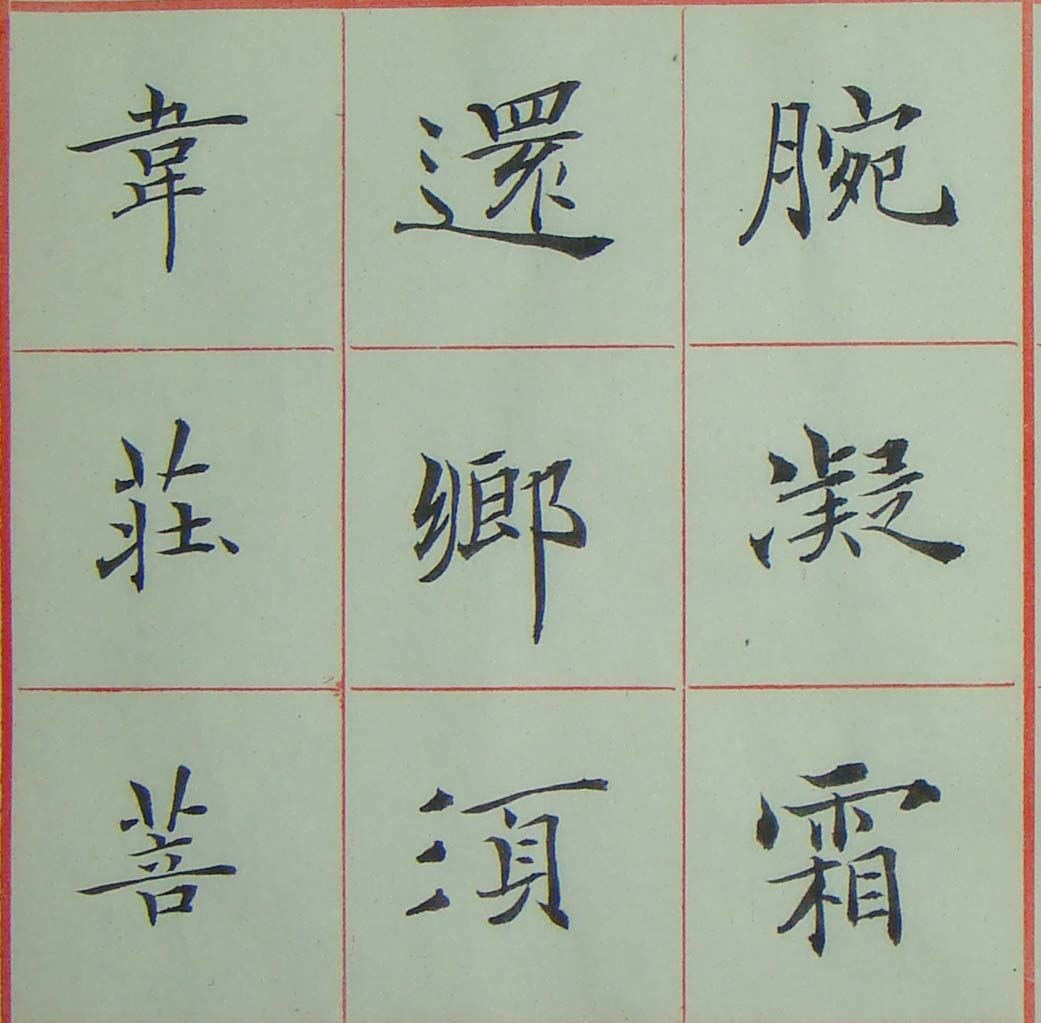 腕凝霜
還鄉須
韋莊菩